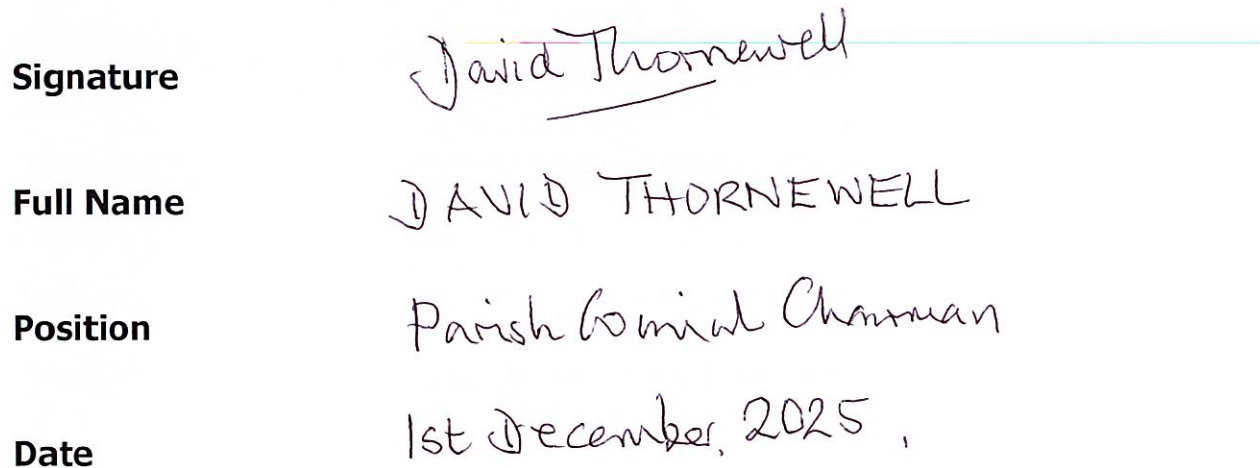 Signature David Thornewell
Full Name DAVID THORNEWELL
Position Parish Council Chairman
Date 1st December, 2025,